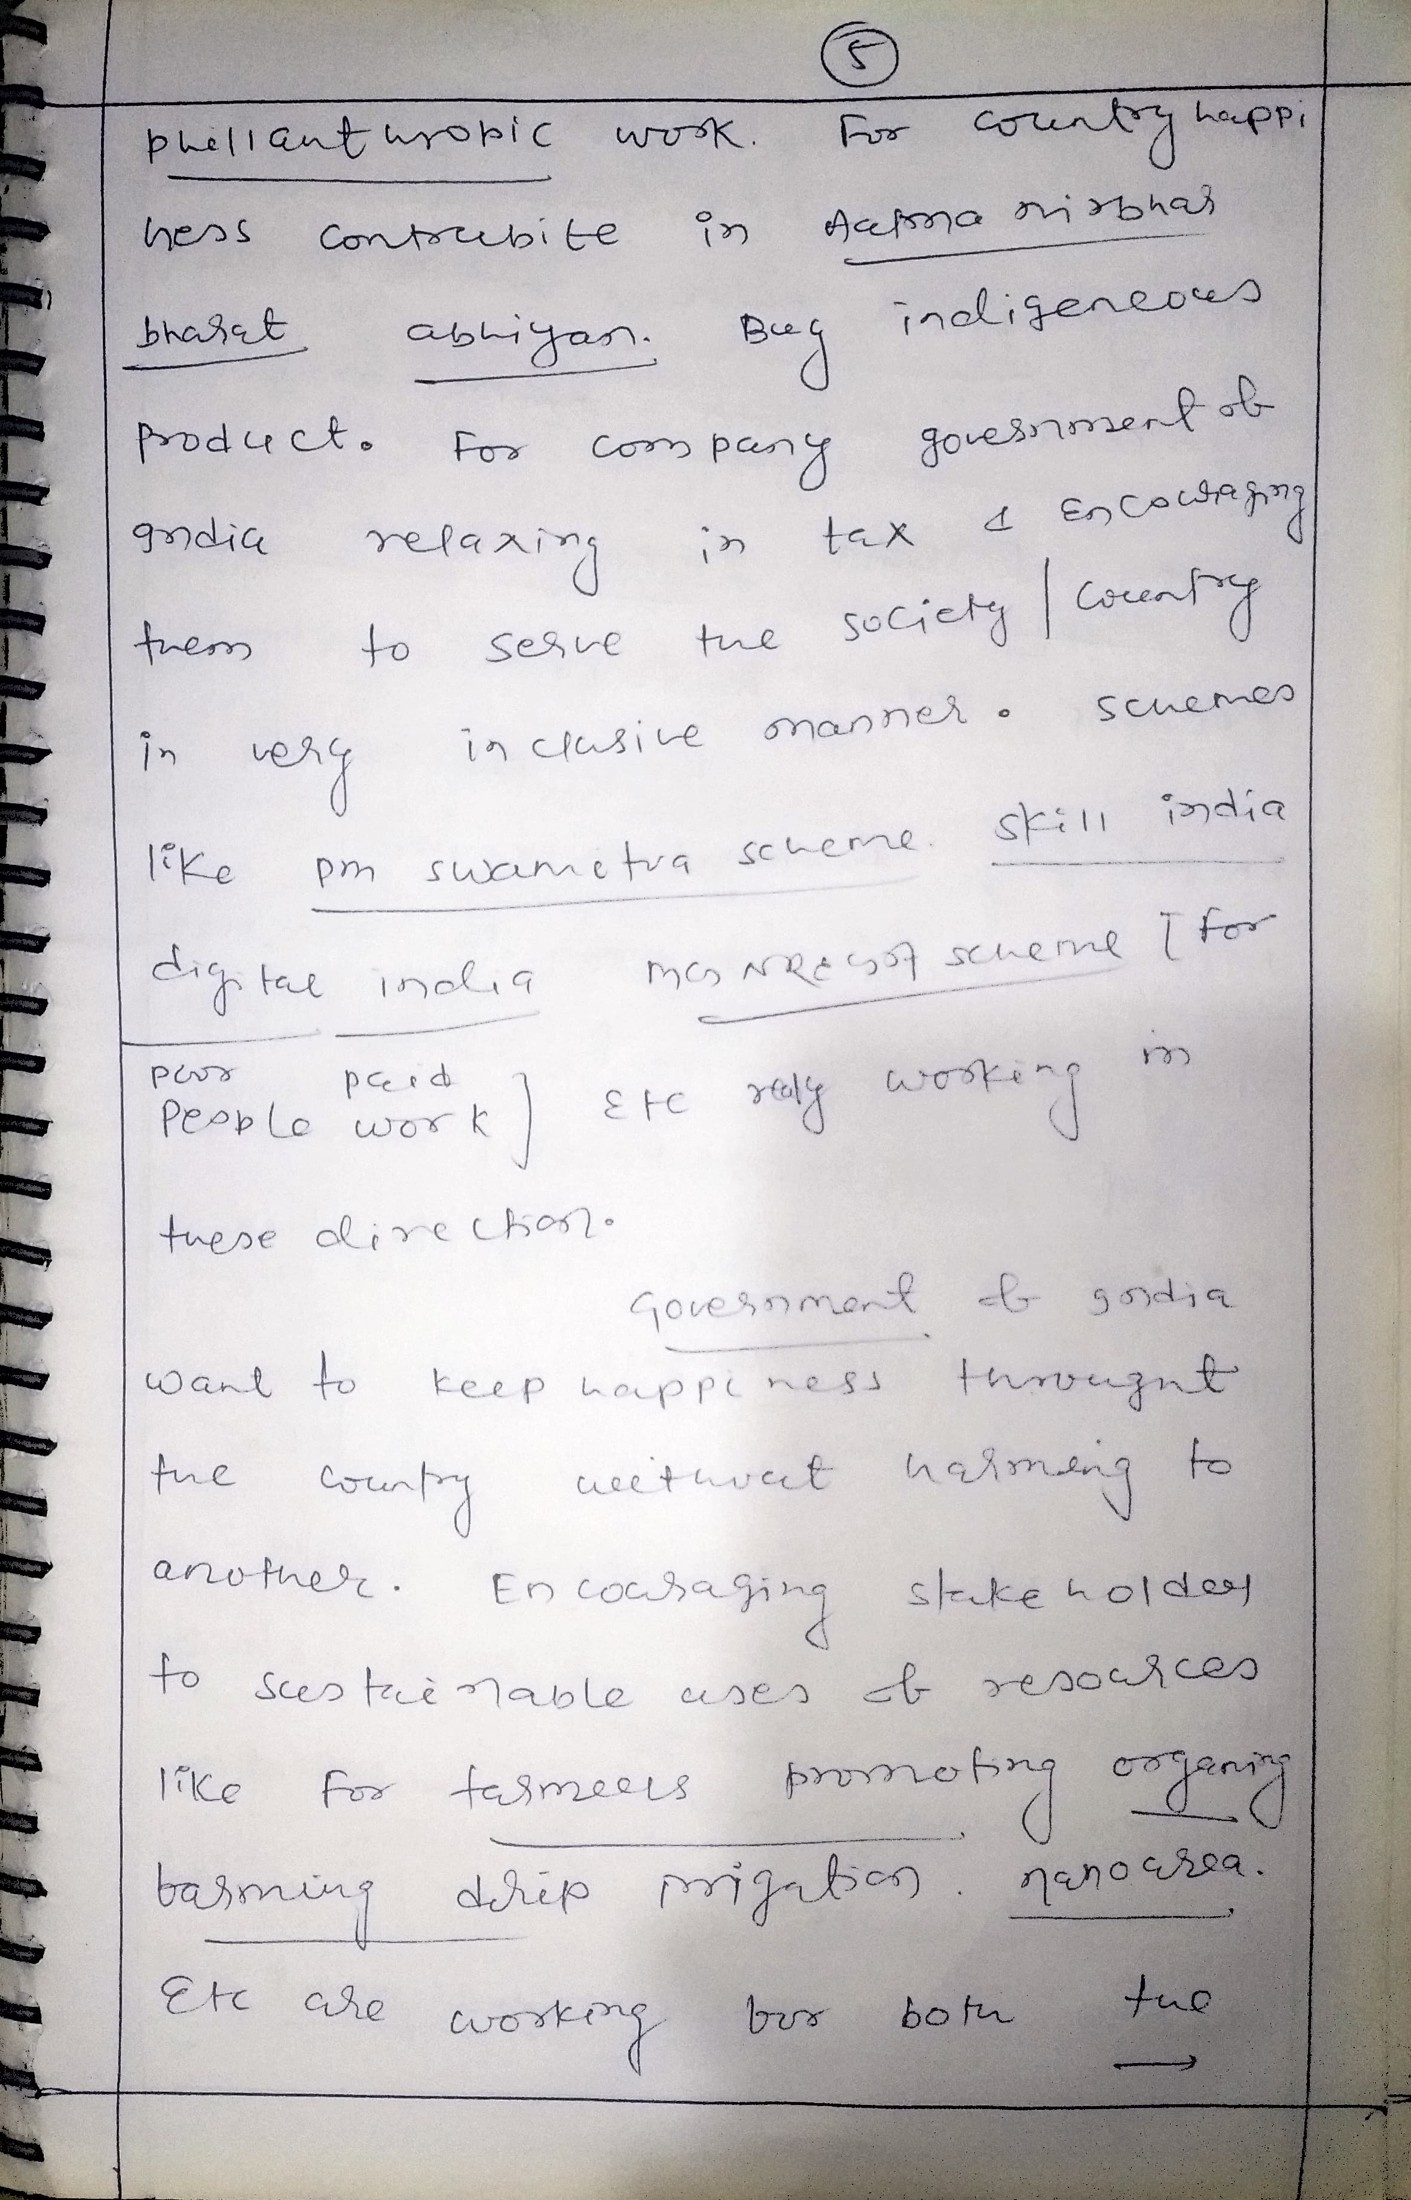 5
phillanthropic work. For country happi
ness contribite in Aatma nirbhar
bharat abhiyan. Buy indigeneous
product. For company government of
India relaxing in tax & Encouraging
them to serve the society / Country
in very inclusive manner. schemes
like pm swamitva scheme. skill india
digital india MGNREGA scheme [ for
poor paid
people work ] Etc realy working in
these direction.
Government of India
want to keep happiness throught
the country without harming to
another. Encouraging stakeholders
to sustainable uses of resources
like For farmers promoting organing
farming drip irrigation. nano area.
Etc are working for both the